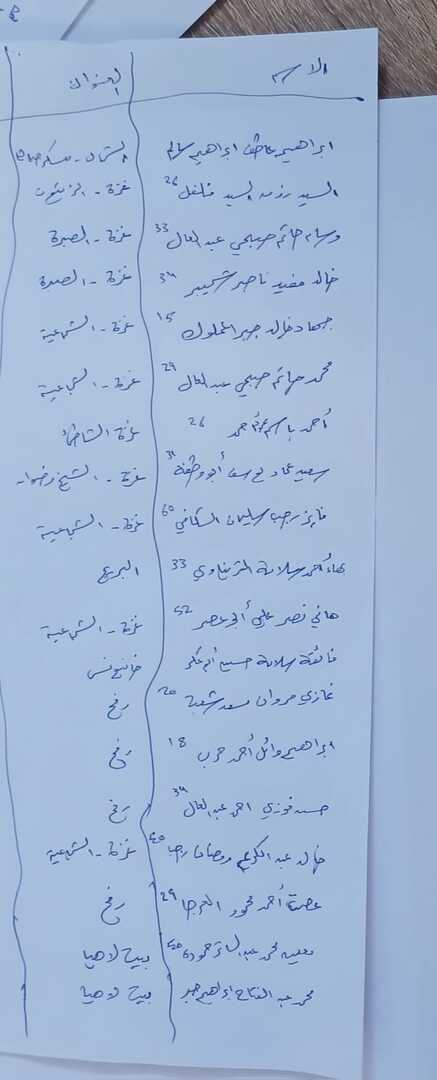 الاسم العنوان
ابراهيم عاطف ابراهيم سالم الشمال - معسكر جباليا
السيد رزق السيد فلفل 26 غزة - الزيتون
وسام حاتم صبحي عبد العال 33 غزة - الصبرة
خالد مفيد ناصر شحيبر 34 غزة - الصبرة
جهاد خالد جبر المملوك 15 غزة - الشجاعية
محمد حاتم صبحي عبد العال 29 غزة - الشجاعية
أحمد باسم أحمد 26 غزة الشاطئ
سعيد عماد يوسف أبو وطفة 31 غزة - الشيخ رضوان
فايز رجب سليمان السكافي 60 غزة - الشجاعية
بهاء أحمد سلامة 33 البريج
هاني نصر علي أبو عصر 52 غزة - الشجاعية
فائقة سلامة حسين أبو عكر خانيونس
غازي مروان سعد 20 رفح
ابراهيم وائل أحمد حرب 18 رفح
حسن فوزي احمد عبد العال 34 رفح
خالد عبد الكريم رمضان رجب 40 غزة - الشجاعية
أحمد محمود العرجا 29 رفح
محمد عبد الساتر حمودة 40 بيت لاهيا
محمد عبد الفتاح ابراهيم جبر بيت لاهيا